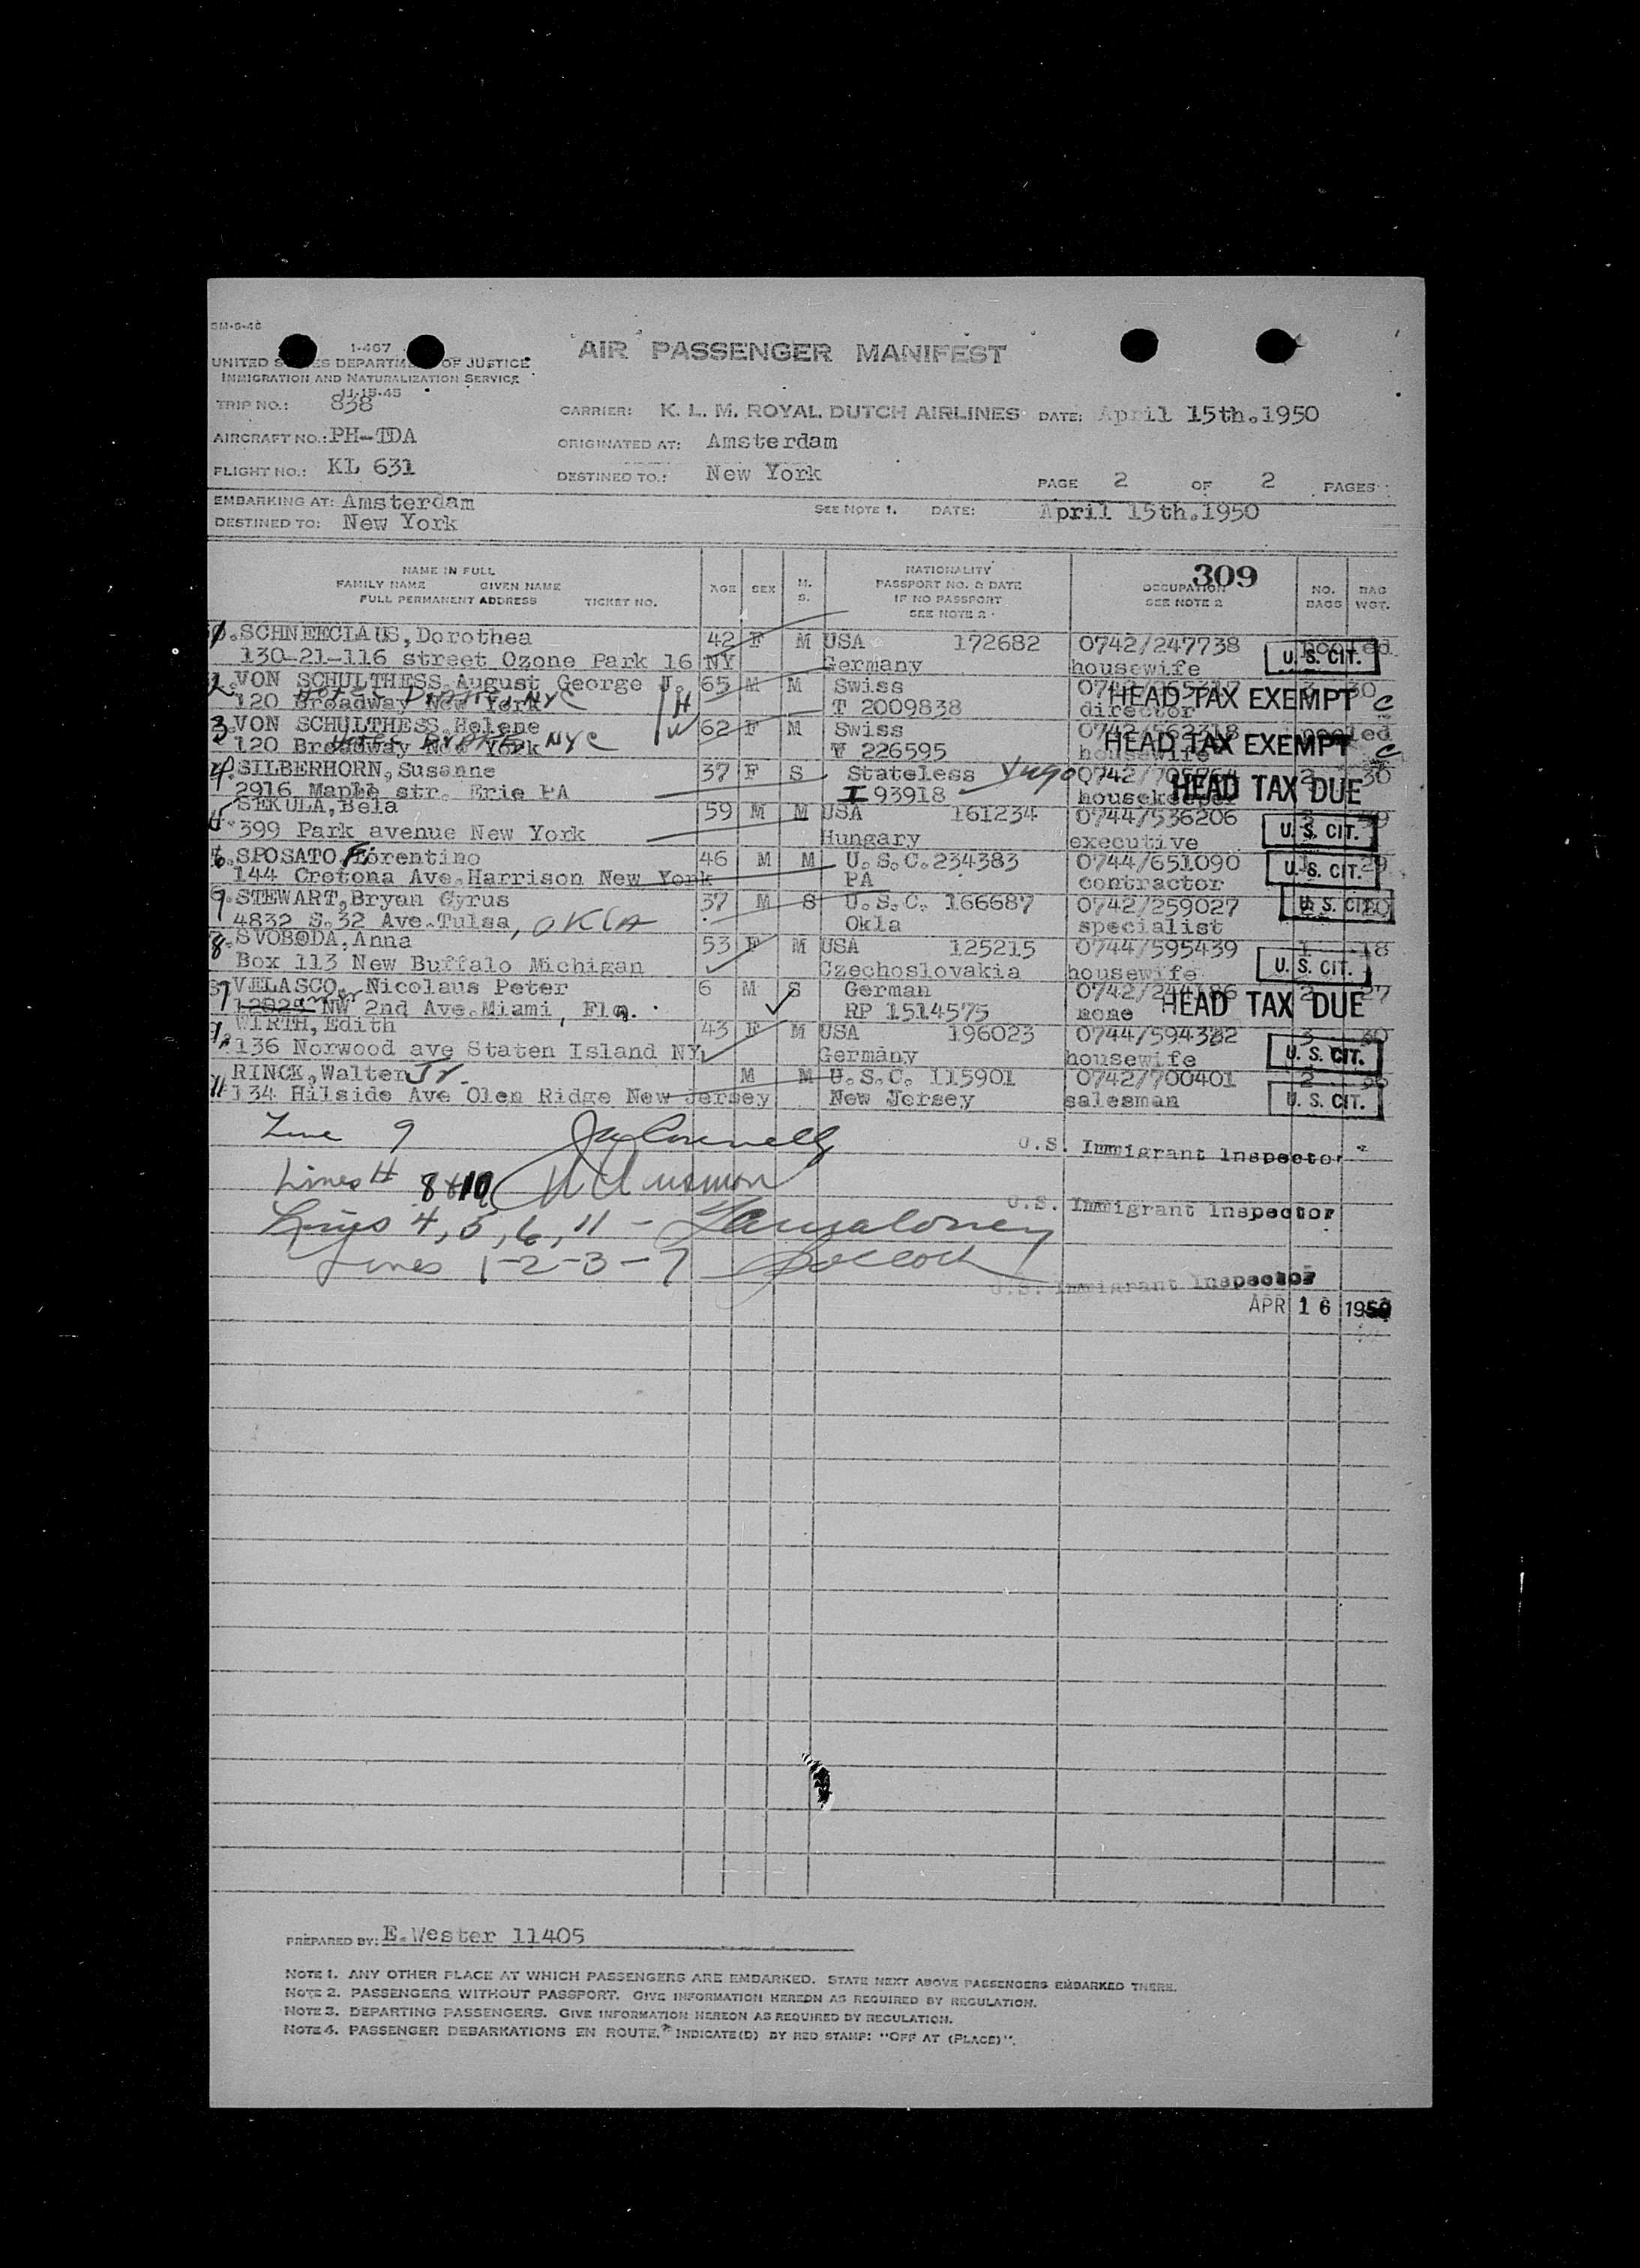 AIR PASSENGER MANIFEST
1-467
UNITED S ES DEPARTM OF JUSTICE
IMMIGRATION AND NATURALIZATION SERVICE
11-15-45
TRIP NO.: 838
CARRIER: K. L. M. ROYAL DUTCH AIRLINES DATE: April 15th.1950
AIRCRAFT NO.: PH-TDA
ORIGINATED AT: Amsterdam
FLIGHT NO.: KL 631
DESTINED TO.: New York
PAGE 2 OF 2 PAGES
EMBARKING AT: Amsterdam
SEE NOTE 1. DATE: April 15th.1950
DESTINED TO: New York
309
NAME IN FULL
FAMILY NAME GIVEN NAME
FULL PERMANENT ADDRESS TICKET NO.
AGE SEX M. S.
NATIONALITY
PASSPORT NO. & DATE
IF NO PASSPORT
SEE NOTE 2
OCCUPATION
SEE NOTE 2
NO. BAGS
BAG WGT.
SCHNEECLAUS, Dorothea 42 F M USA 172682 0742/247738 pooled
130-21-116 street Ozone Park 16 NY Germany housewife U. S. CIT.
VON SCHULTHESS August George J. 65 M M Swiss
120 Broadway New York NYC H T 2009838 director HEAD TAX EXEMPT C
3. VON SCHULTHESS Helene 62 F M Swiss 0742/562318 pooled
120 Broadway New York NYC W T 226595 housewife HEAD TAX EXEMPT C
4. SILBERHORN, Susanne 37 F S Stateless Yugo 2 30
2916 Maple str. Erie PA I 93918 housekeeper HEAD TAX DUE
SEKULA, Bela 59 M M USA 161234 0744/536206
399 Park avenue New York Hungary executive U. S. CIT.
6. SPOSATO Fiorentino 46 M M U.S.C. 234383 0744/651090 29
144 Cretona Ave. Harrison New York PA contractor U. S. CIT.
9. STEWART, Bryan Cyrus 37 M S U.S.C. 166687 0742/259027
4832 S. 32 Ave. Tulsa, OKLA Okla specialist U. S. CIT.
8. SVOBODA, Anna 53 F M USA 125215 0744/595439 1 18
Box 113 New Buffalo Michigan Czechoslovakia housewife U. S. CIT.
7 VELASCO, Nicolaus Peter 6 M S German 0742/244186 2 27
NW 2nd Ave. Miami, Fla. RP 1514575 none HEAD TAX DUE
WIRTH, Edith 43 F M USA 196023 0744/594382 3 30
136 Norwood ave Staten Island NY Germany housewife U. S. CIT.
RINCK, Walter Jr. M M U.S.C. 115901 0742/700401 2
11 134 Hilside Ave Olen Ridge New Jersey New Jersey salesman U. S. CIT.
Line 9
U.S. Immigrant Inspector
Lines # 8 & 10
U.S. Immigrant Inspector
Lines 4, 5, 6, 11 -
Lines 1-2-3-7
U.S. Immigrant Inspector
APR 16 1950
PREPARED BY: E.Wester 11405
NOTE 1. ANY OTHER PLACE AT WHICH PASSENGERS ARE EMBARKED. STATE NEXT ABOVE PASSENGERS EMBARKED THERE.
NOTE 2. PASSENGERS WITHOUT PASSPORT. GIVE INFORMATION HEREON AS REQUIRED BY REGULATION.
NOTE 3. DEPARTING PASSENGERS. GIVE INFORMATION HEREON AS REQUIRED BY REGULATION.
NOTE 4. PASSENGER DEBARKATIONS EN ROUTE. INDICATE(D) BY RED STAMP: "OFF AT (PLACE)".